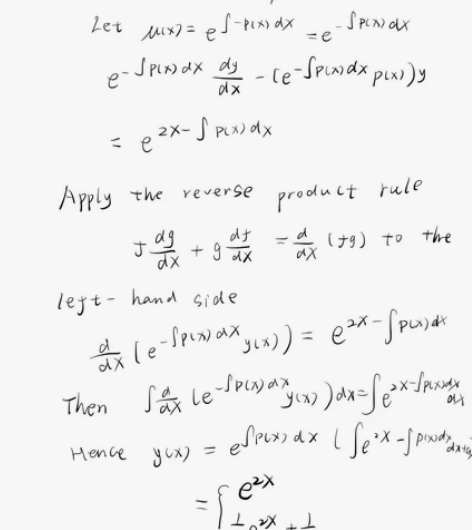 Let μ(x) = e^∫-p(x) dx = e^-∫p(x) dx
e^-∫p(x) dx dy/dx - (e^-∫p(x) dx p(x))y
= e^2x-∫p(x) dx
Apply the reverse product rule
f dg/dx + g df/dx = d/dx (fg) to the
left-hand side
d/dx (e^-∫p(x) dx y(x)) = e^2x-∫p(x) dx
Then ∫d/dx (e^-∫p(x) dx y(x)) dx = ∫e^2x-∫p(x) dx dx
Hence y(x) = e^∫p(x) dx (∫e^2x-∫p(x) dx dx+c
= { e^2x